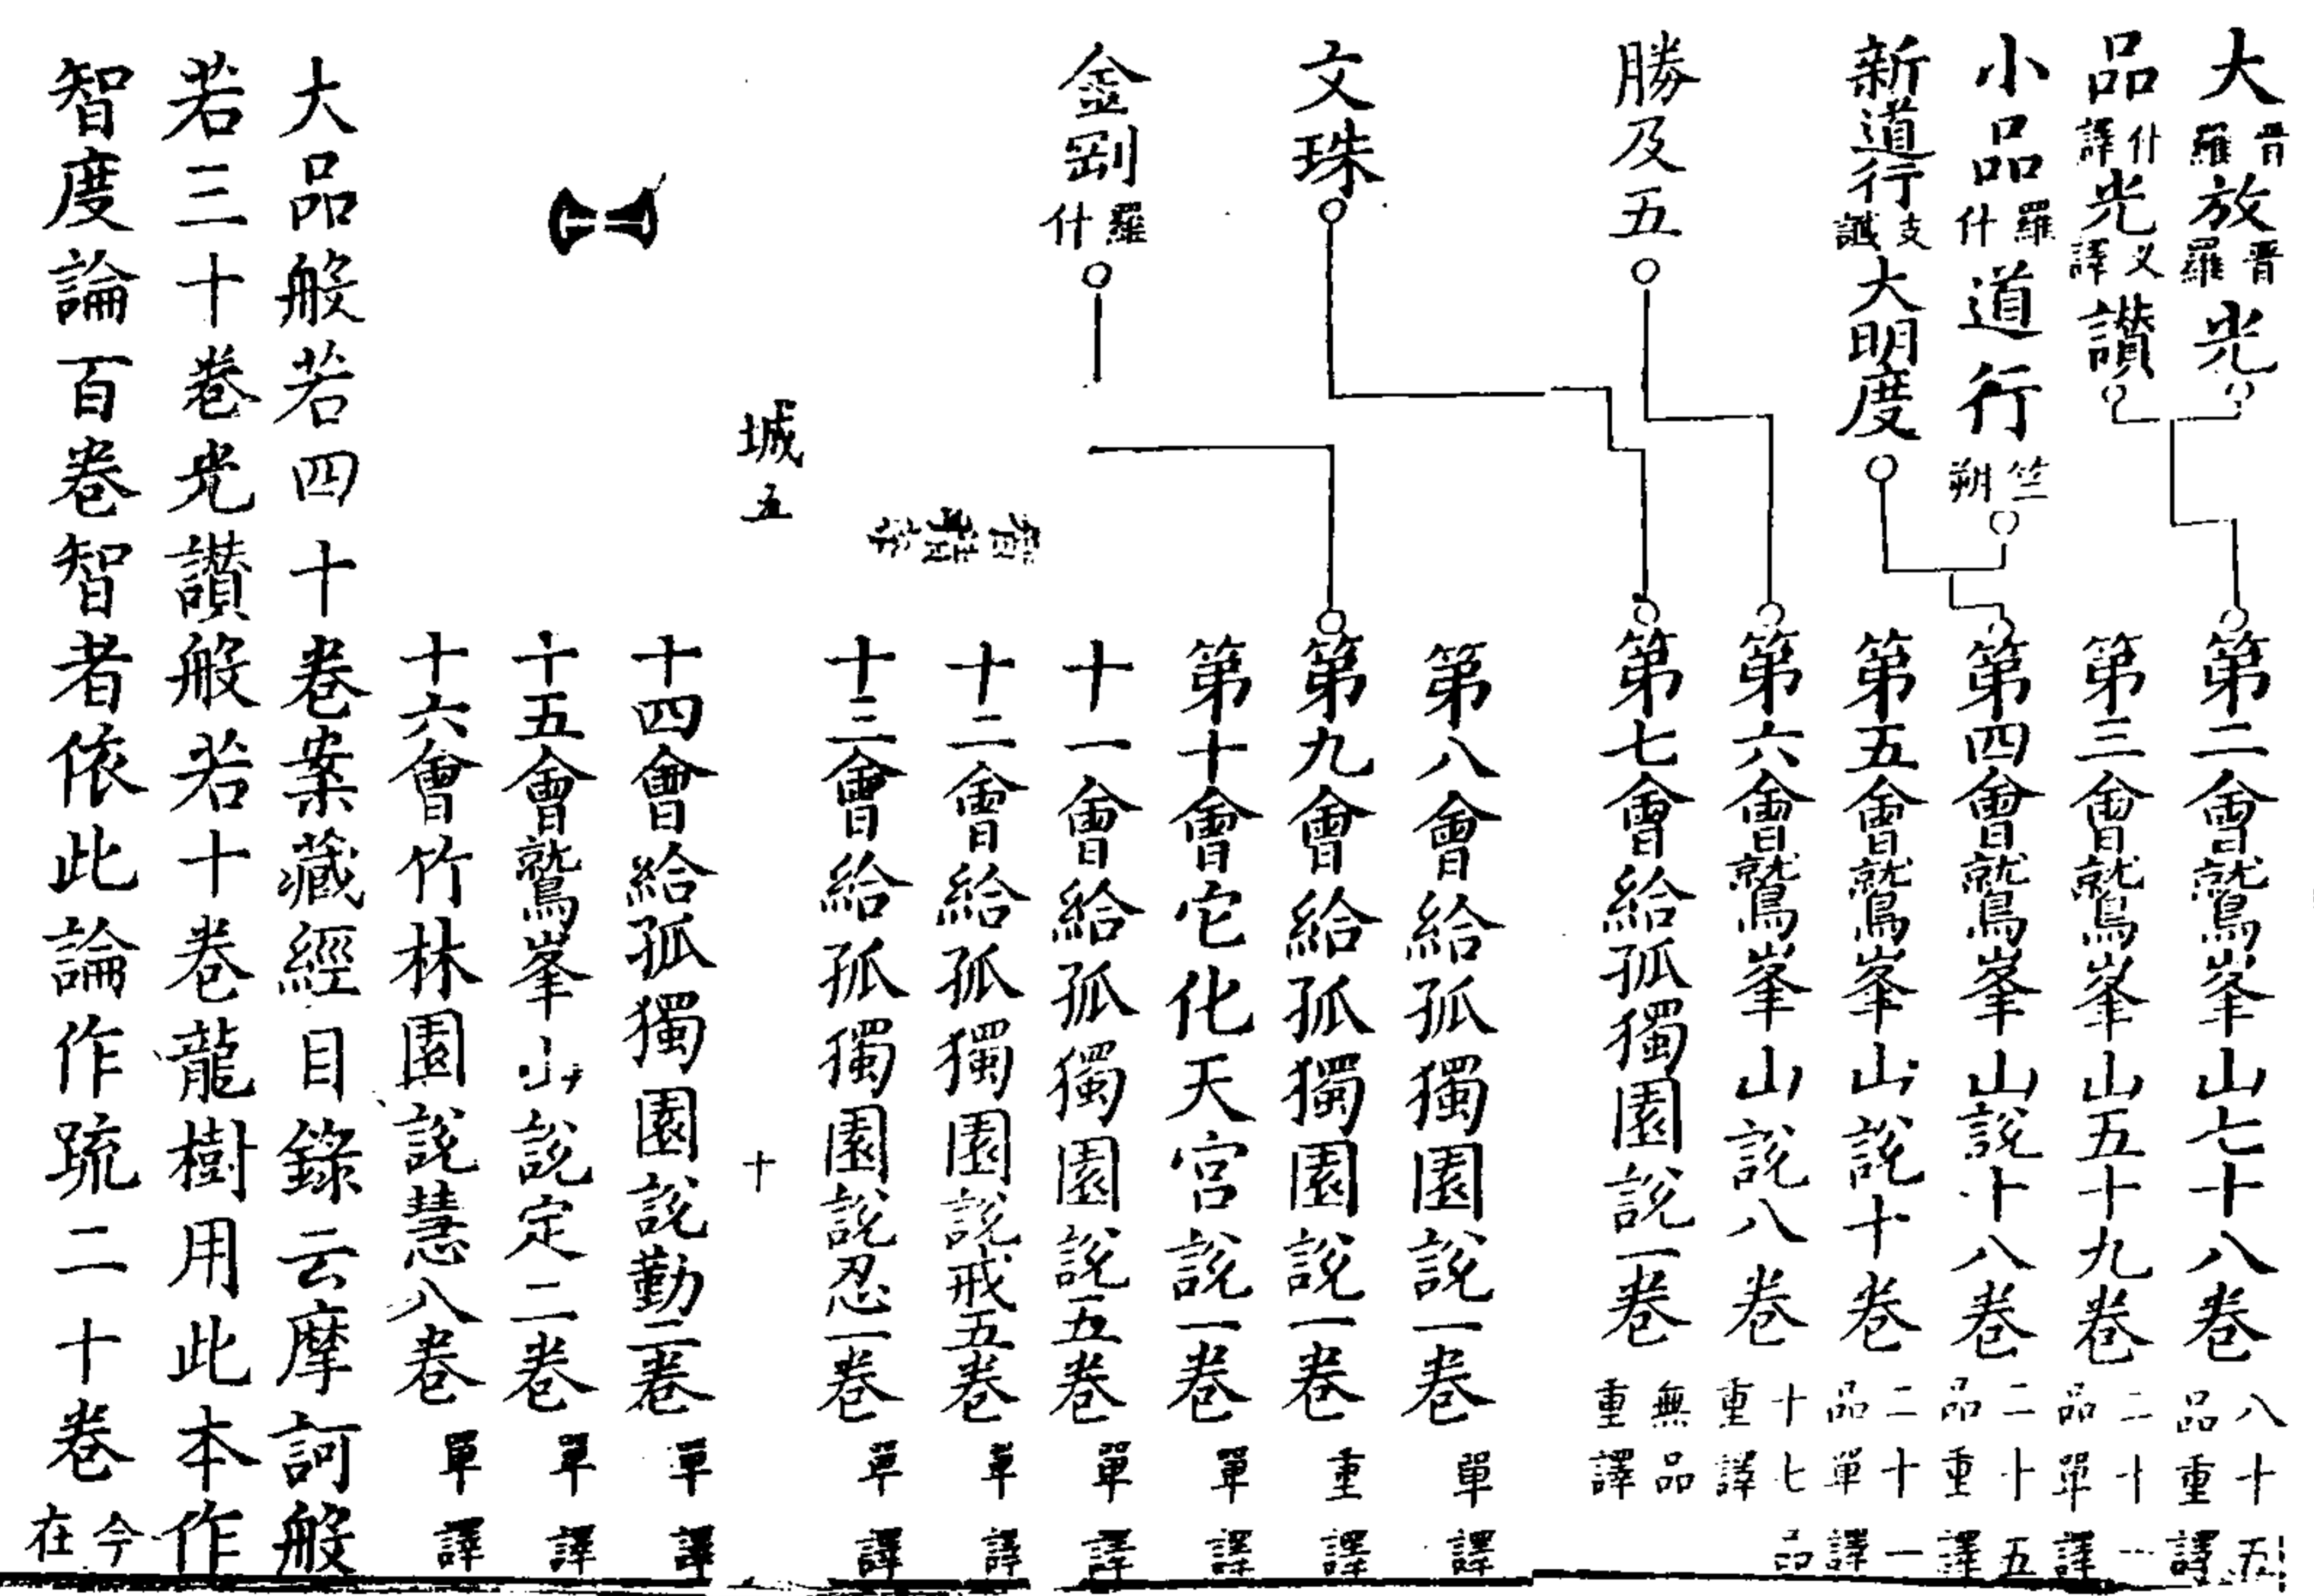 大品 晋羅什譯 放光 晋羅乂譯
光讃
小品 羅什
道行 竺朔
新道行 支讖
大明度
勝及五
文珠
金剛 羅什
第二會鷲峯山七十八卷 八十五品重譯
第三會鷲峯山五十九卷 二十一品單譯
第四會鷲峯山說十八卷 二十五品重譯
第五會鷲峯山說十卷 二十一品單譯
第六會鷲峯山說八卷 十七品重譯
第七會給孤獨園說一卷 無品重譯
第八會給孤獨園說一卷 單譯
第九會給孤獨園說一卷 重譯
第十會它化天宮說一卷 單譯
十一會給孤獨園說五卷 單譯
十二會給孤獨園說戒五卷 單譯
十三會給孤獨園說忍一卷 單譯
城五
十
十四會給孤獨園說勤二卷 單譯
十五會鷲峯山說定二卷 單譯
十六會竹林園說慧八卷 單譯
大品般若四十卷案藏經目錄云摩訶般
若三十卷光讃般若十卷龍樹用此本作
智度論百卷智者依此論作疏二十卷 今在